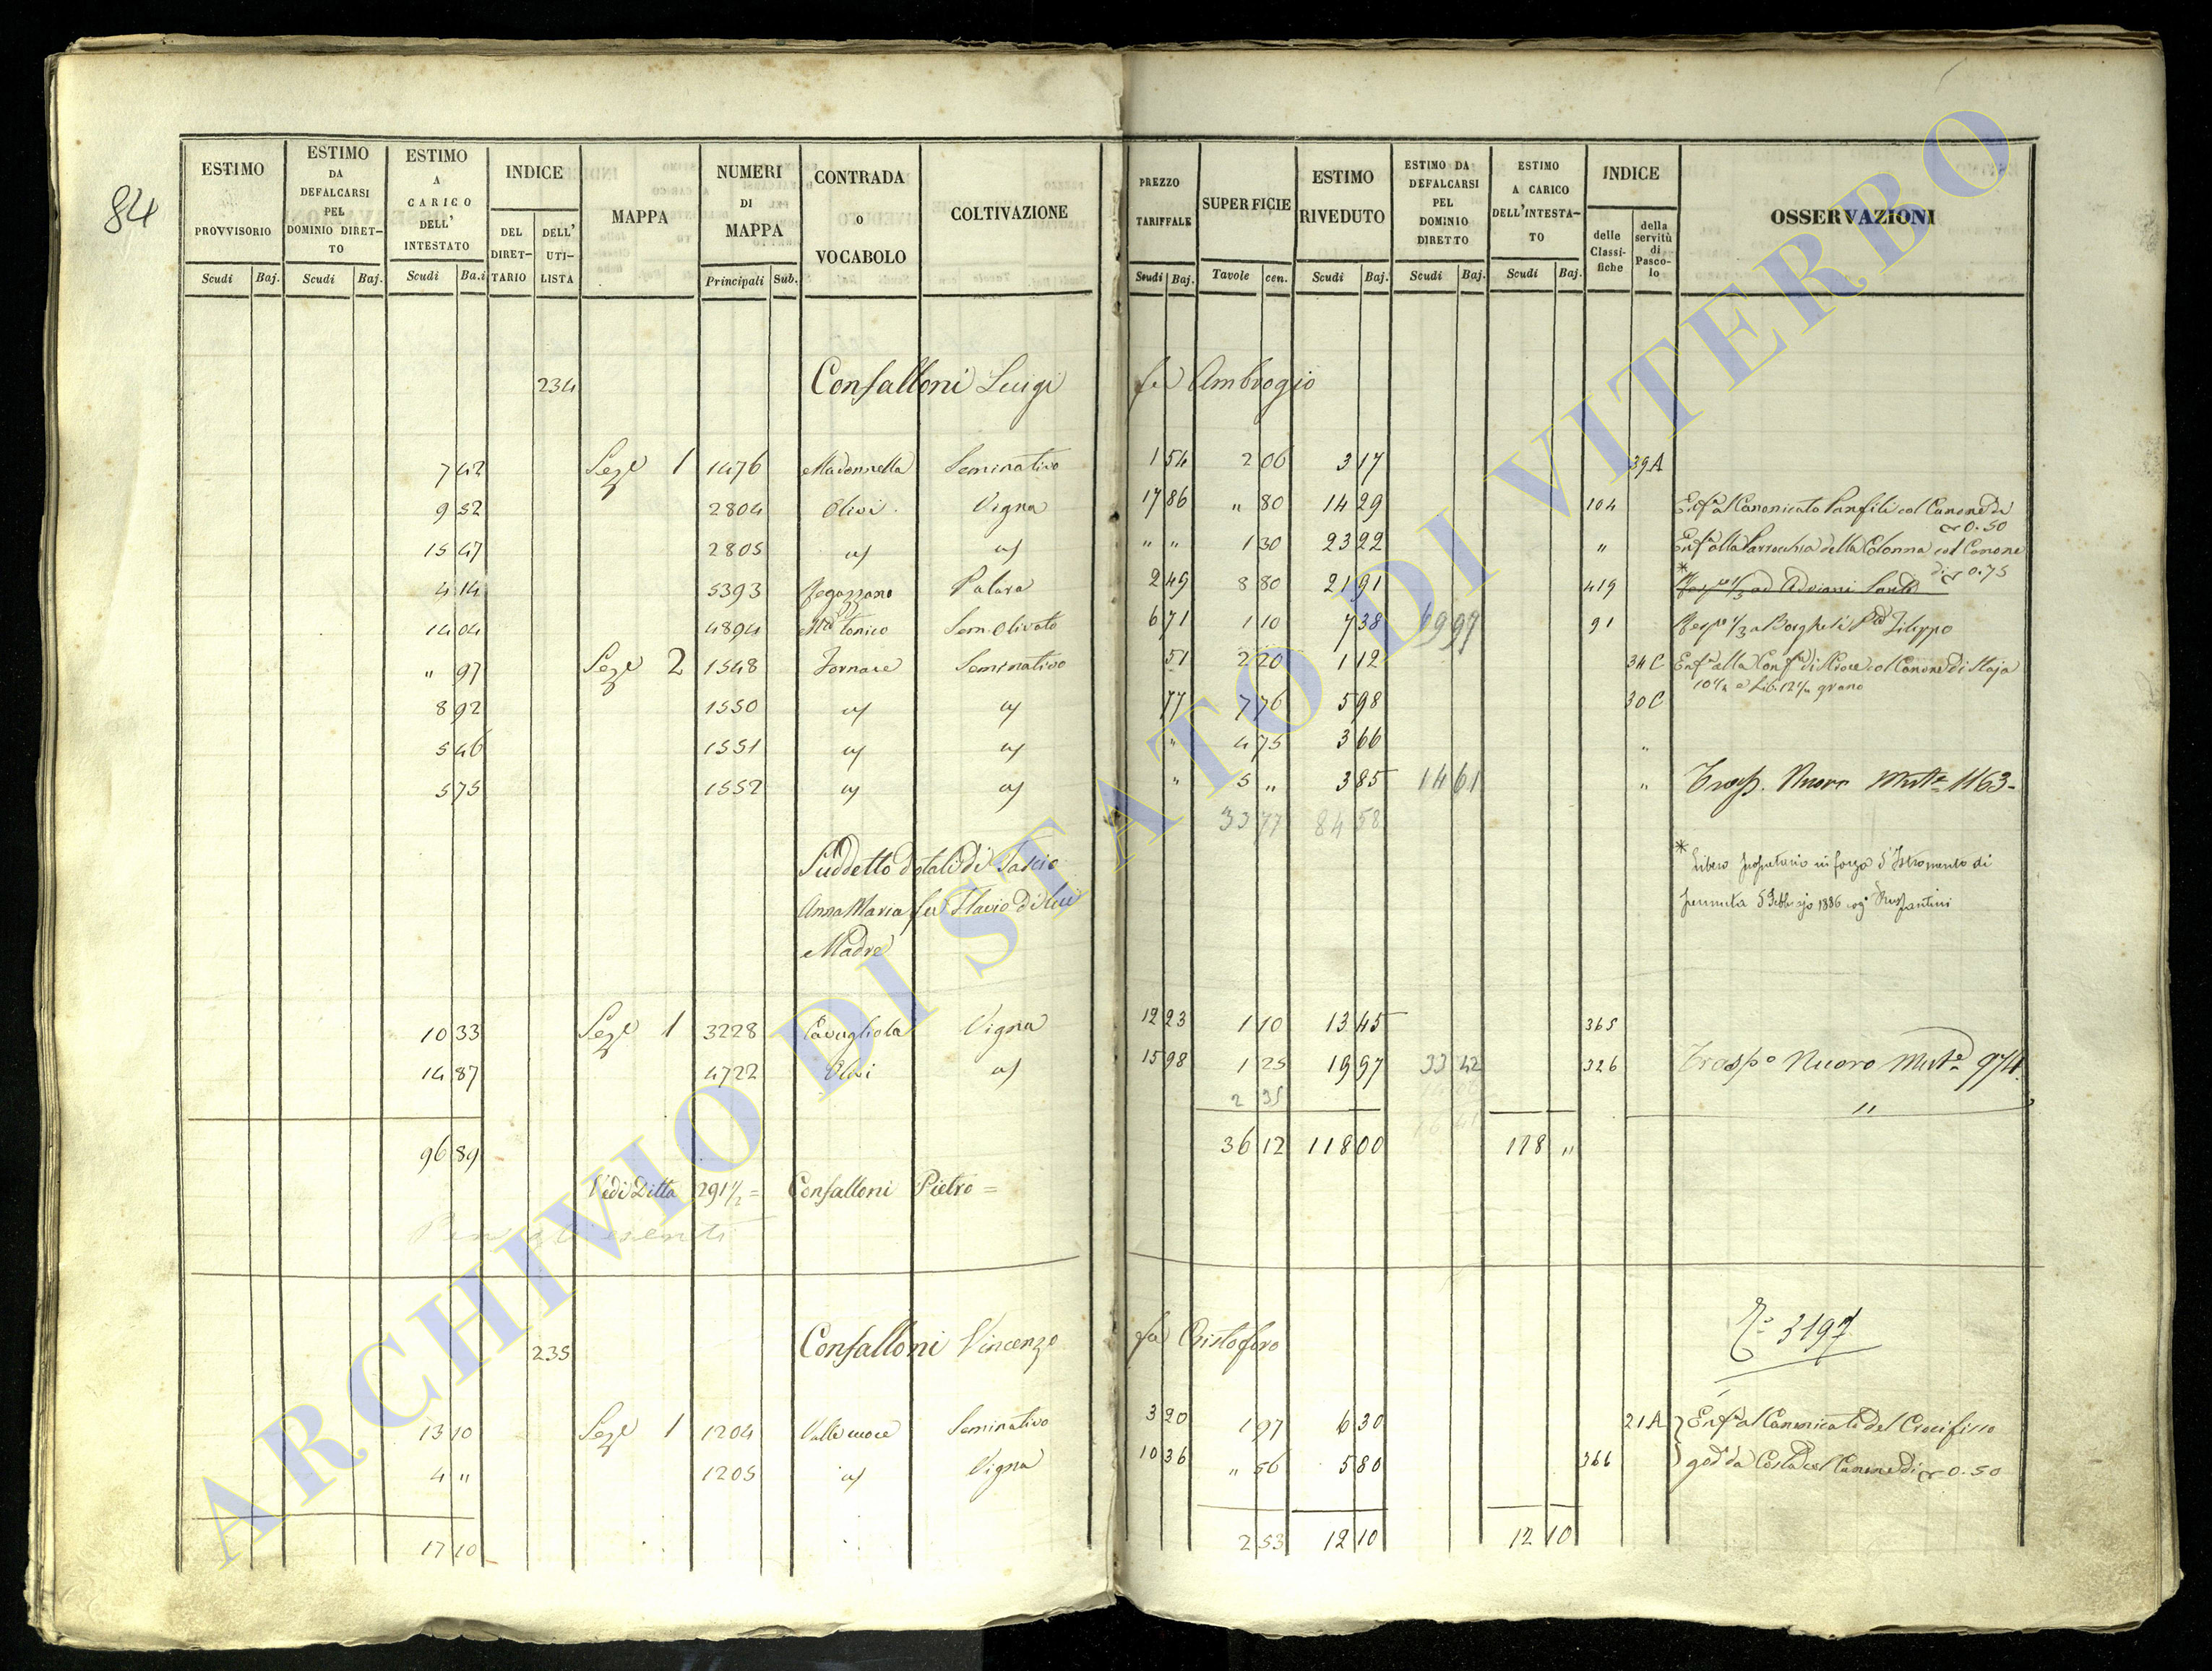 84
ESTIMO PROVVISORIO Scudi Baj. | ESTIMO DA DEFALCARSI PEL DOMINIO DIRETTO Scudi Baj. | ESTIMO A CARICO DELL' INTESTATO Scudi Ba.i | INDICE DEL DIRETTARIO DELL' UTILISTA | MAPPA | NUMERI DI MAPPA Principali Sub. | CONTRADA o VOCABOLO | COLTIVAZIONE | PREZZO TARIFFALE Scudi Baj. | SUPERFICIE Tavole cen. | ESTIMO RIVEDUTO Scudi Baj. | ESTIMO DA DEFALCARSI PEL DOMINIO DIRETTO Scudi Baj. | ESTIMO A CARICO DELL'INTESTATO Scudi Baj. | INDICE delle Classifiche della servitù di Pascolo | OSSERVAZIONI
234 Confalloni Luigi fu Ambrogio
7 42 Sez.e 1 1476 Madonnella Seminativo 1 54 2 06 3 17 39A
9 52 2804 Olivi Vigna 17 86 " 80 14 29 104 Enf.a al Canonicato Panfili col Canone di
0.50
15 47 2805 " " 1 30 23 22 " Enf.a alla Parrochia della Colonna col Canone
di 0.75
4 14 5393 Palara 2 49 8 80 21 91 419 * 1/3 ad Adriani Santi
14 04 4894 Sem. Olivato 6 71 1 10 7 38 69 97 91 1/3 a Borghesi Filippo
" 97 Sez.e 2 1548 Fornace Seminativo 51 2 20 1 12 34 C Enf.a alla Conf. di Croce col Canone di Staja
grano
8 92 1550 77 7 76 5 98 30 C
5 46 1551 " 4 75 3 66 "
5 75 1552 " 5 " 3 85 14 61 " Trasp. Nuovo Mut.e 1163-
33 77 84 58
Suddetto dotali di Tascio
Anna Maria fu Flavio di lui
Madre
* Libero proprietario in forza d'Istromento di
permuta 5 Febbrajo 1886
10 33 Sez.e 1 3228 Cavugliola Vigna 12 23 1 10 13 45 365
14 87 4722 Olivi 15 98 1 25 19 97 33 42 326 Trasp.o Nuovo Mut.e 974
2 35 "
96 89 36 12 118 00 118 "
Vedi Ditta 291 1/2 = Confalloni Pietro =
esenti
235 Confalloni Vincenzo fu Cristoforo
3197
13 10 Sez.e 1 1204 Seminativo 3 20 1 97 6 30 21 A Enf.a al Canonicato del Crocifisso
4 " 1205 Vigna 10 36 " 56 5 80 366 god.a da Costa col Canone di 0.50
17 10 2 53 12 10 12 10
ARCHIVIO DI STATO DI VITERBO